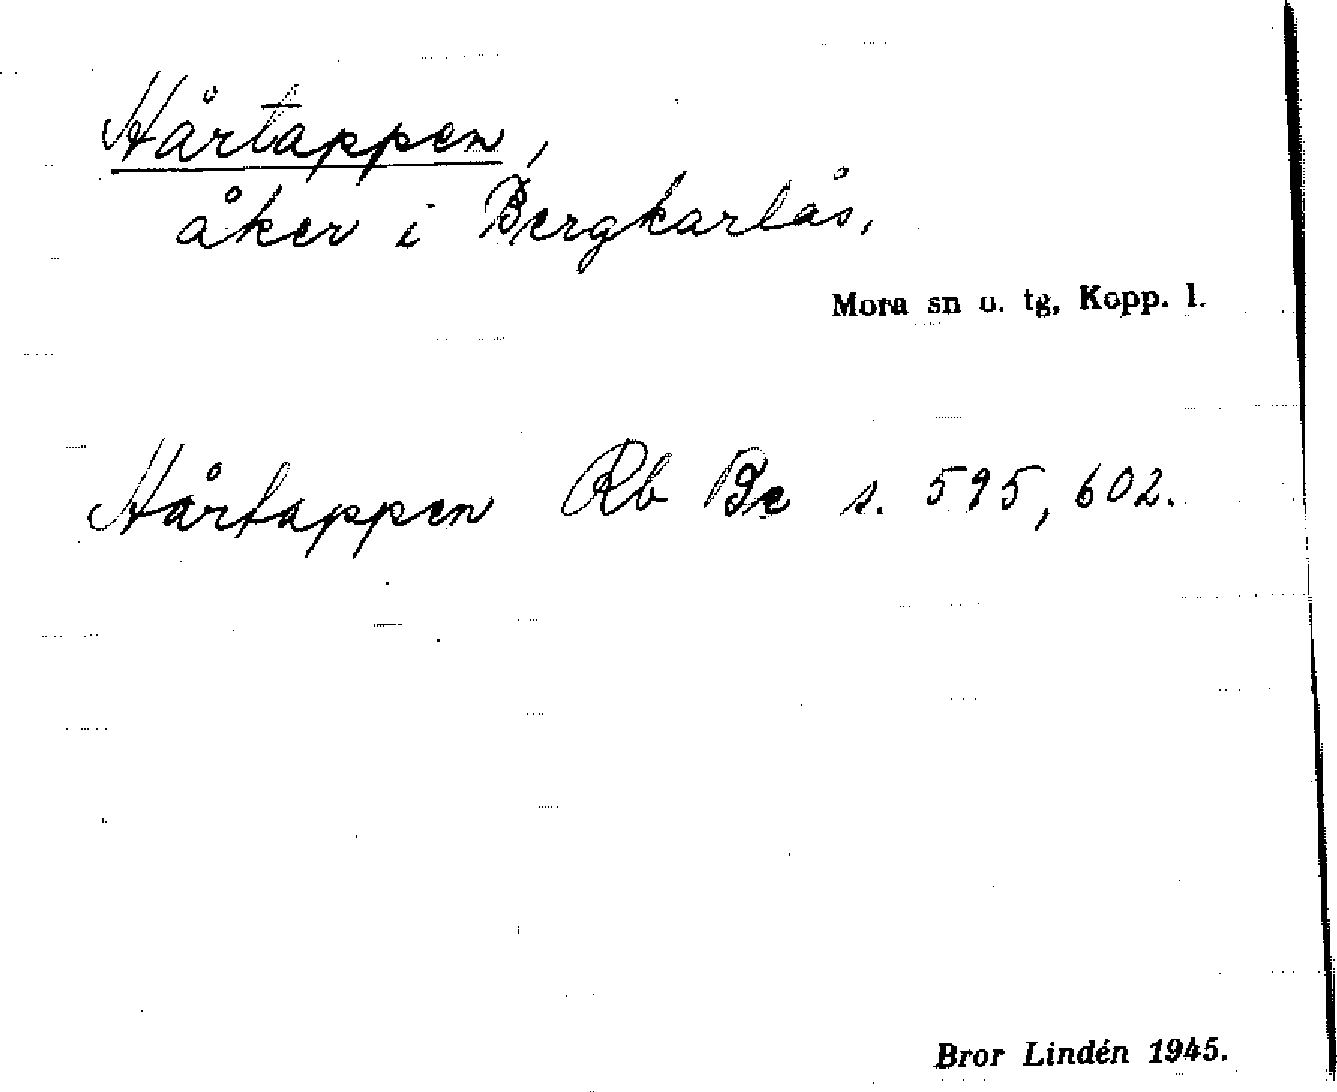 Hårtappen,
åker i Bergkarlås,
Mora sn o. tg, Kopp. l.
Hårtappen Rb Be s. 595, 602.
Bror Lindén 1945.